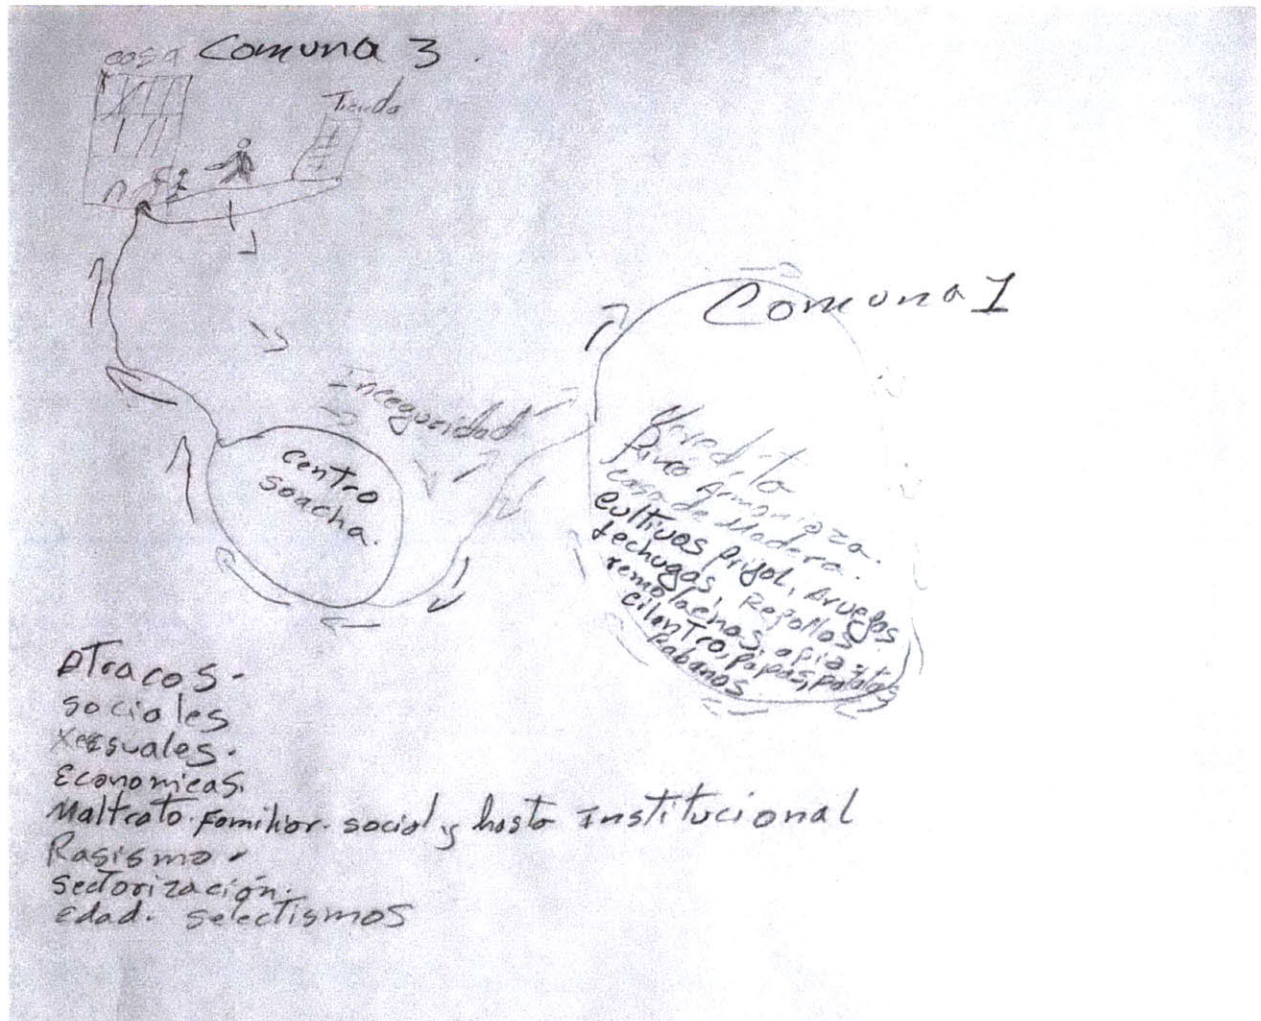 casa Comuna 3
Tienda
Comuna 1
Incegueridad
centro
soacha.
Veredita
casa de Madera.
Cultivos frijol, Aruejas
Lechugas, Repollos
remolachas, apia y
cilantro, papas, patatas
Rabanos
Atracos-
sociales
Xexsuales.
Economicas.
Maltrato. familiar. social y hasta Institucional
Rasismo-
sectorización.
Edad. selectismos